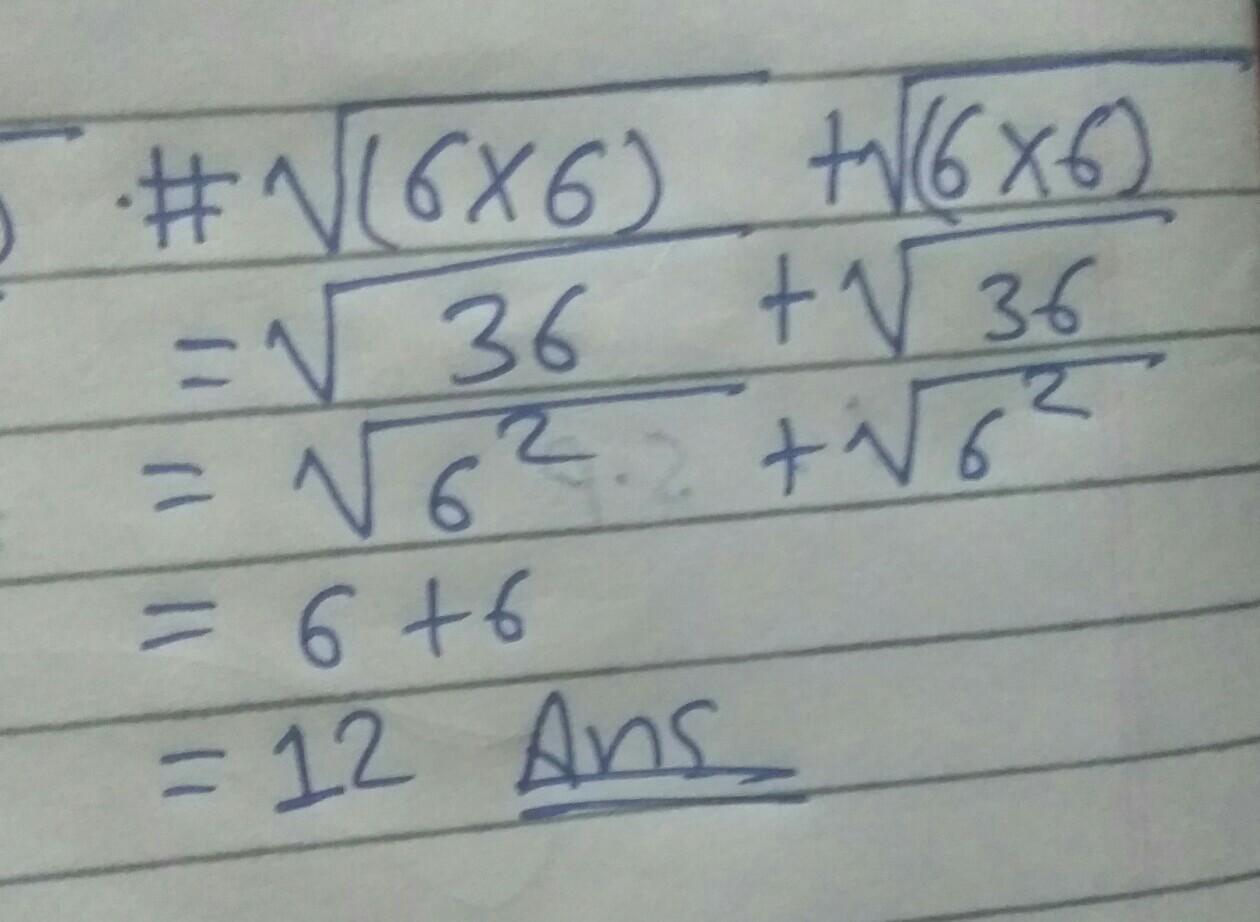 # √(6×6) + √(6×6)
= √36 + √36
= √6² + √6²
= 6 + 6
= 12 Ans